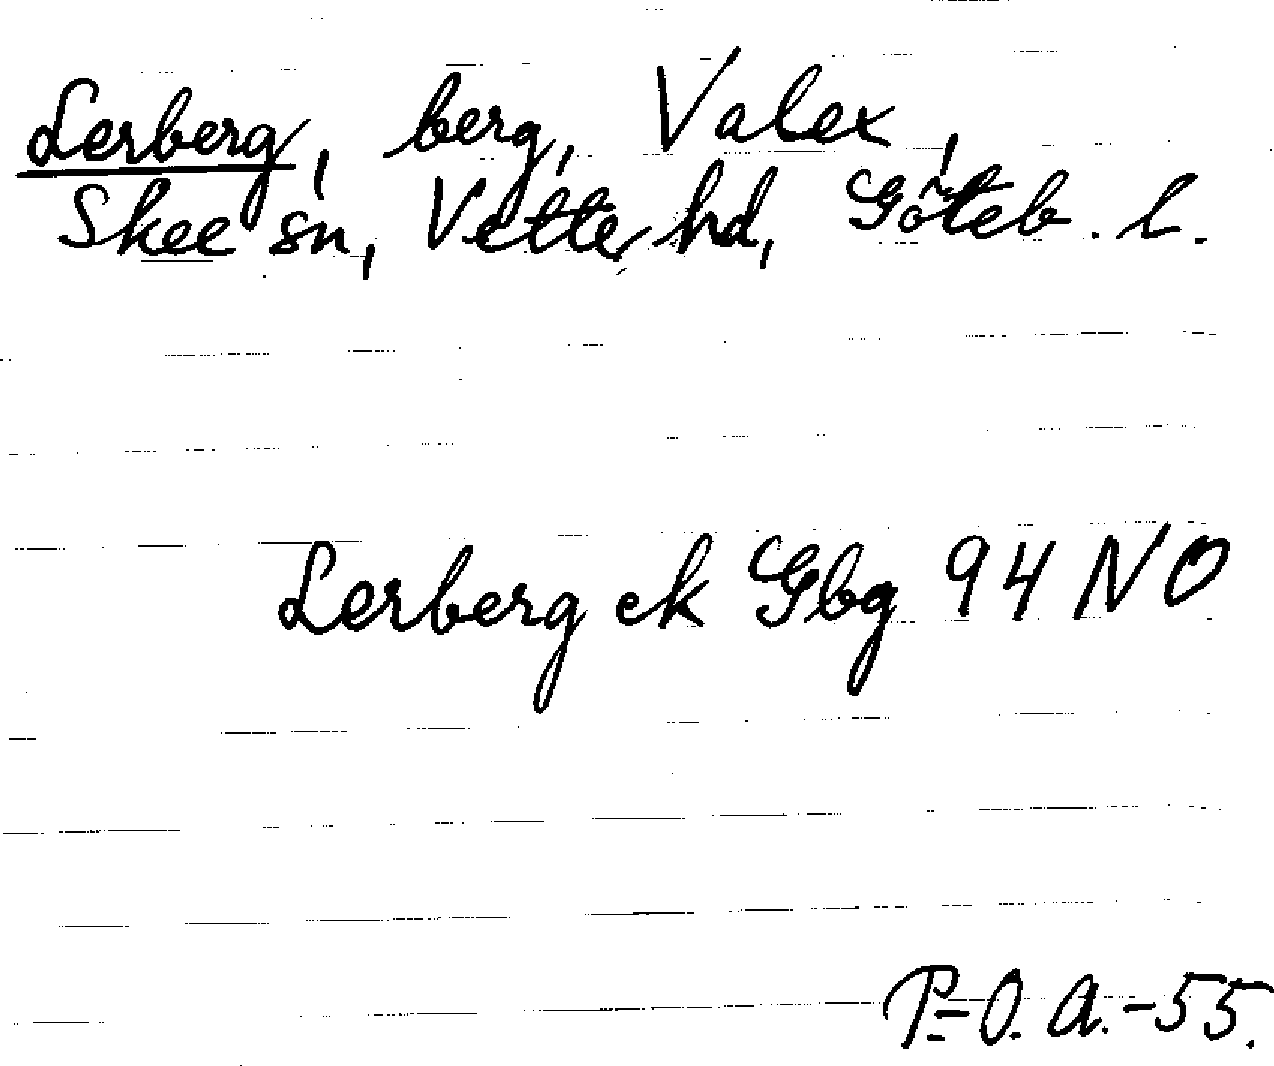 Lerberg, berg, Valex,
Skee sn, Vette hd, Göteb. l.
Lerberg ek Gbg 94 NO
P-O. A.-55.